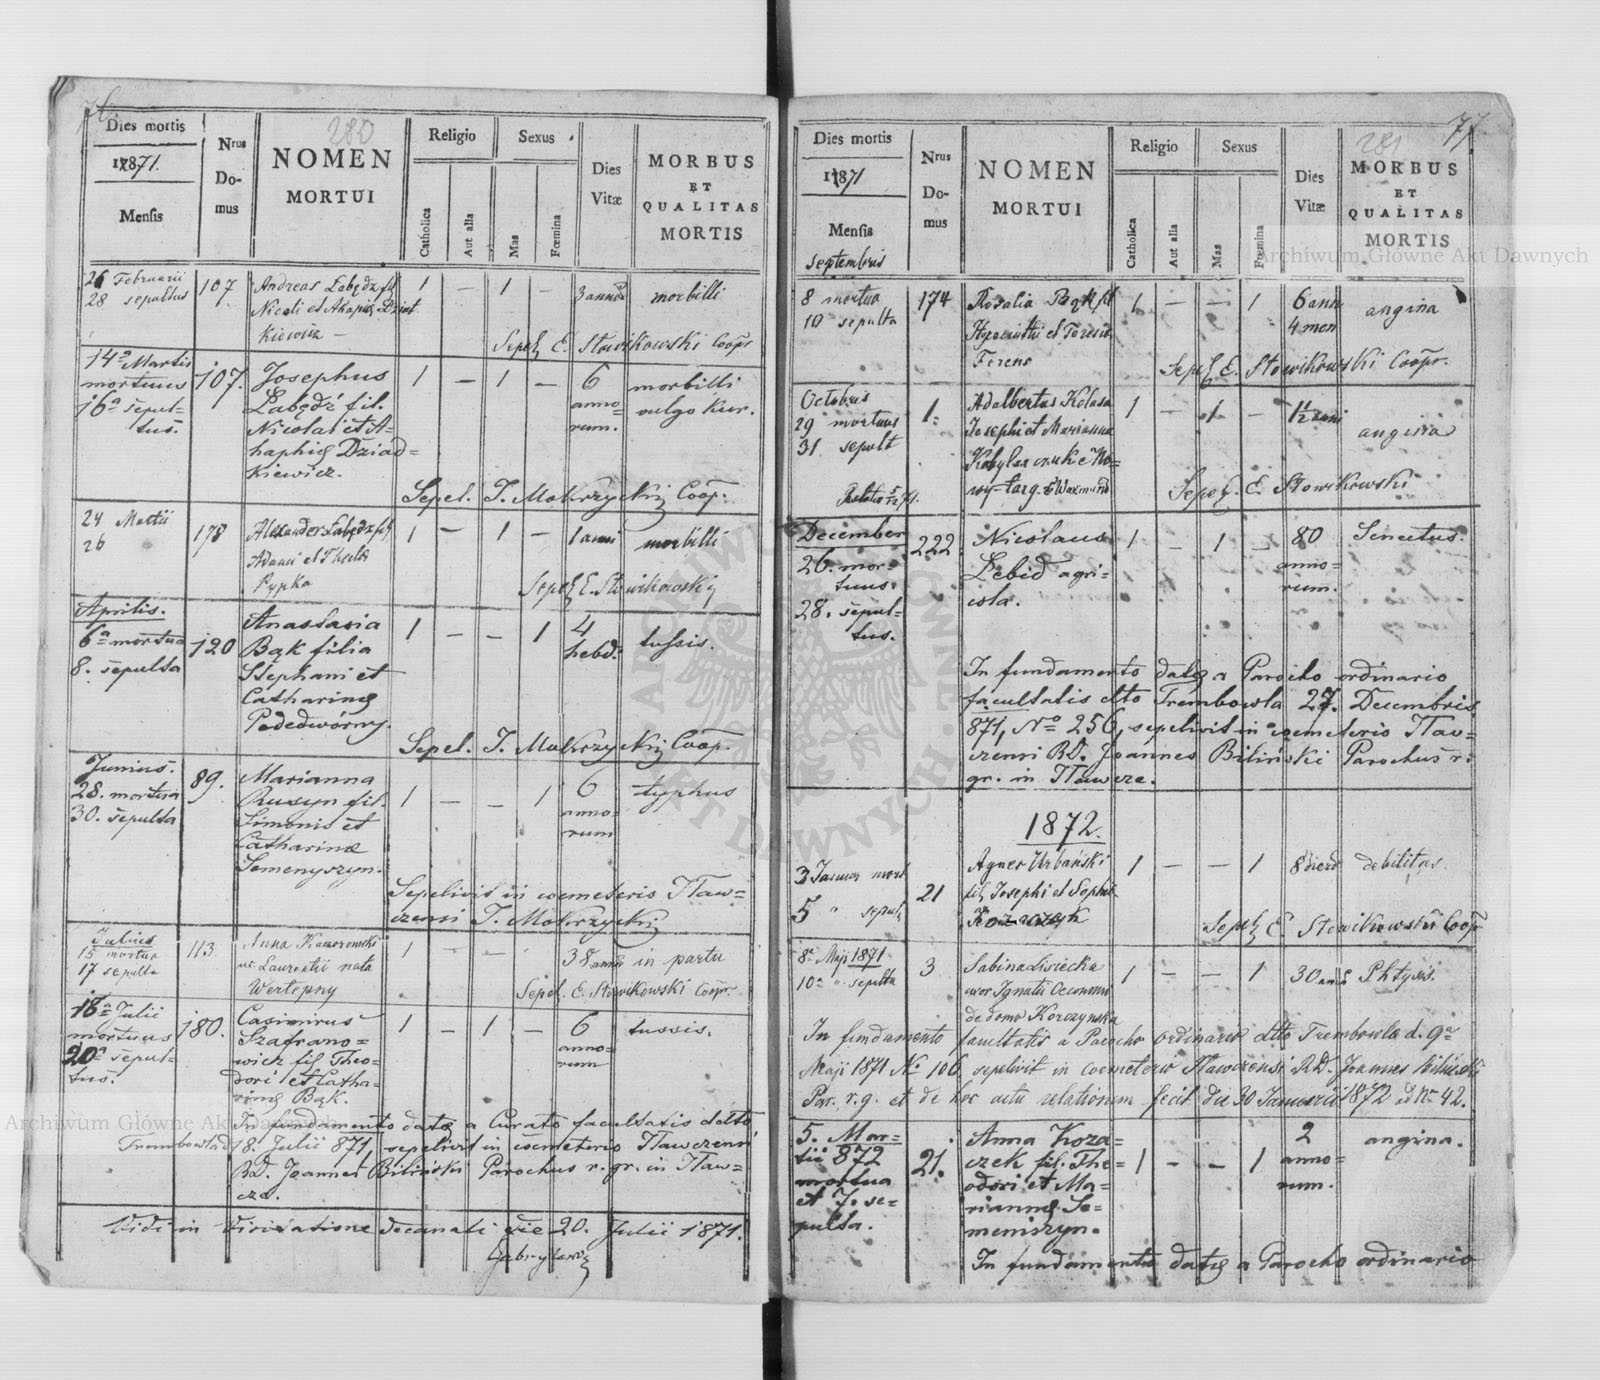 76
280
Dies mortis
1871.
Mensis
Nrus
Do-
mus
NOMEN
MORTUI
Religio
Catholica
Aut alia
Sexus
Mas
Fœmina
Dies
Vitæ
MORBUS
ET
QUALITAS
MORTIS
26 Februarii
28 sepultus
107
Andreas Łabędź fil
Nicoli et Ahapiæ Dziad
kiewicz
1 — 1 —
3 annor
morbilli
Sepel E. Słowikowski Coopr
14a Martis
mortuus
16a sepul-
tus.
107.
Josephus
Łabędź fil.
Nicolai et A-
haphiæ Dziad-
kiewicz.
1 — 1 —
6
anno-
rum.
morbilli
vulgo kur.
Sepel. T. Mokrzycki Coop.
24 Martii
26
178
Alexander Łabędź fil
Adami et Thecla
Pypka
1 — 1 —
1 anni
morbilli
Sepel E. Słowikowski
Aprilis.
6a mortua
8. sepulta
120
Anastasia
Bąk filia
Stephani et
Catharinæ
Podedwórny.
1 — — 1
4
hebd.
tussis.
Sepel. T. Mokrzycki Coop.
Junius.
28. mortua
30. sepulta
89.
Marianna
Rusyn fil.
Simonis et
Catharinæ
Semenyszyn.
1 — — 1
6
anno-
rum
typhus
Sepelivit in coemeterio Iław-
czensi T. Mokrzycki
Julius
15 mortua
17 sepulta
113
Anna
Laurentii nata
Wertepny
1 - -
38 anno
in partu
Sepel. E. Słowikowski Coopr.
18a Julii
mortuus
20a sepul-
tus.
180.
Casimirus
Szafrano-
wicz fil Theo-
dori et Catha-
rinæ Bąk.
1 — 1 —
6
anno-
rum
tussis.
In fundamento datæ a Curato facultatis ddto
Trembowla d 18. Julii 871, sepelivit in coemeterio Iławczensi
RD. Joannes Biliński Parochus r. gr. in Iław-
cze.
Vidi in Visitatione decanali die 20. Julii 1871.
77
281
Dies mortis
1871
Mensis
Septembris
Nrus
Do-
mus
NOMEN
MORTUI
Religio
Catholica
Aut alia
Sexus
Mas
Fœmina
Dies
Vitæ
MORBUS
ET
QUALITAS
MORTIS
8 mortua
10 sepulta
174
Rosalia Bąk fil
Hyacinthi et Teresia
Ferens
1 — — 1
6 ann
4 men
angina
Sepel E. Słowikowski Coopr.
Octobris
29 mortuus
31. sepult
1.
Adalbertus Kolasa
Josephi et Marianna
1 — 1 —
1½ anni
angina
Sepel. E. Słowikowski
December
26. mor-
tuus.
28. sepul-
tus.
222
Nicolaus
Lebid agri-
cola.
1 — 1 —
80
anno-
rum.
Senectus.
In fundamento datæ a Parocho ordinario
facultatis dto Trembowla 27. Decembris
871, No 256, sepelivit in coemeterio Iław-
czensi RD. Joannes Biliński Parochus r.
gr. in Iławcze.
1872.
3 Januar mort
5 " sepul
21
Agnes Urbański
fil Josephi et Sophia
1 — — 1
8 dierū
debilitas.
Sepel E. Słowikowski Coopr
8a Maji 1871
10a " sepulta
3
Sabina Lisiecka
uxor Ignatii Oeconomi
de domo Korczynska
1 — — 1
30 annor
Phtysis.
In fundamento facultatis a Parocho ordinario dto Trembowla d. 9a
Maji 1871 No 106 sepelivit in Coemeterio Iławczensi R.D. Joannes Biliński
Par. r. g. et de hoc actu relationem fecit die 30 Januarii 1872 ad No 42.
5. Mar-
tii 872
mortua
et 7. se-
pulta.
21.
Anna Koza-
czek fil. The-
odori et Ma-
riannæ Se-
meniszyn.
1 — — 1
2
anno-
rum.
angina.
In fundamento datæ a Parocho ordinario
Archiwum Główne Akt Dawnych
Archiwum Główne Akt Dawnych